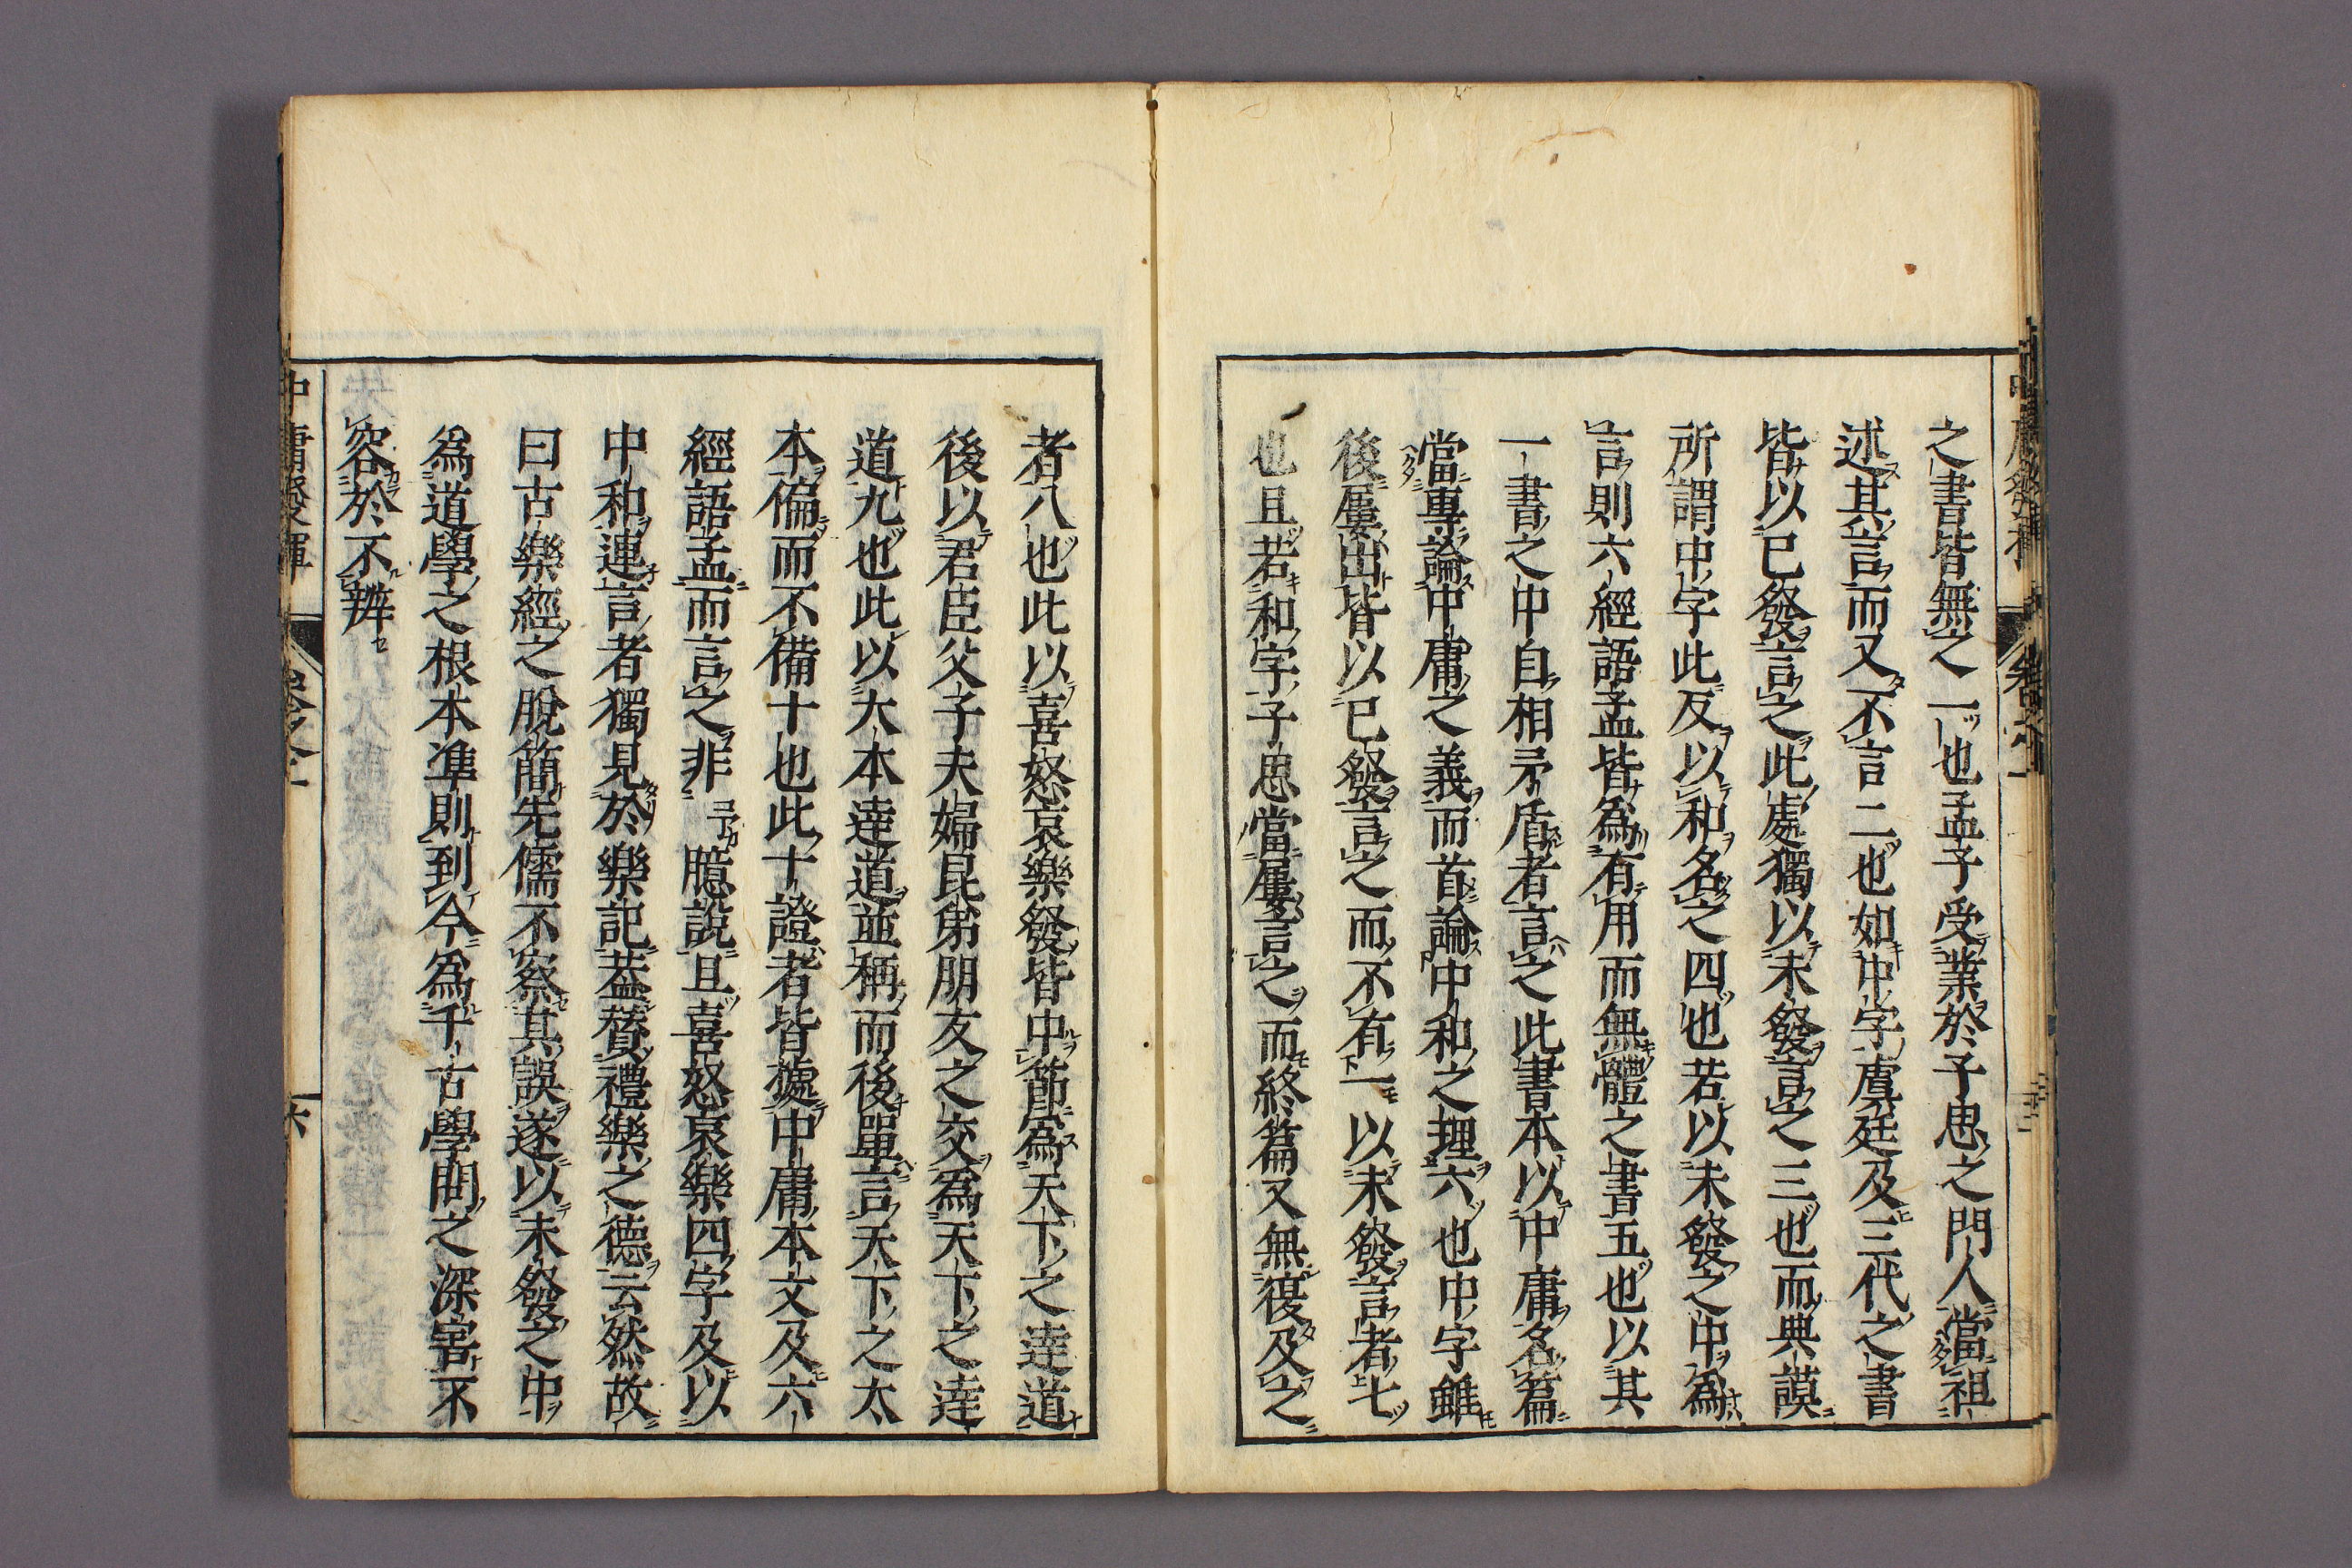 之書皆無之一也孟子受業於子思之門人當祖
述其言而又不言二也如中字虞廷及三代之書
皆以已發言之此處獨以未發言之三也而典謨
所謂中字此反以和名之四也若以未發之中爲
言則六經語孟皆爲有用而無體之書五也以其
一書之中自相矛盾者言之此書本以中庸名篇
當專論中庸之義而首論中和之理六也中字雖
後屢出皆以已發言之而不有一以未發言者七
也且若和字子思當屢言之而終篇又無復及之
者八也此以喜怒哀樂發皆中節爲天下之逹道
後以君臣父子夫婦昆弟朋友之交爲天下之逹
道九也此以大本逹道並稱而後單言天下之太
本偏而不備十也此十證者皆據中庸本文及六
經語孟而言之非予臆說且喜怒哀樂四字及以
中和連言者獨見於樂記葢賛禮樂之德云然故
曰古樂經之脫簡先儒不察其誤遂以未發之中
爲道學之根本準則到今爲千古學問之深害不
容於不辨
中庸發揮
六